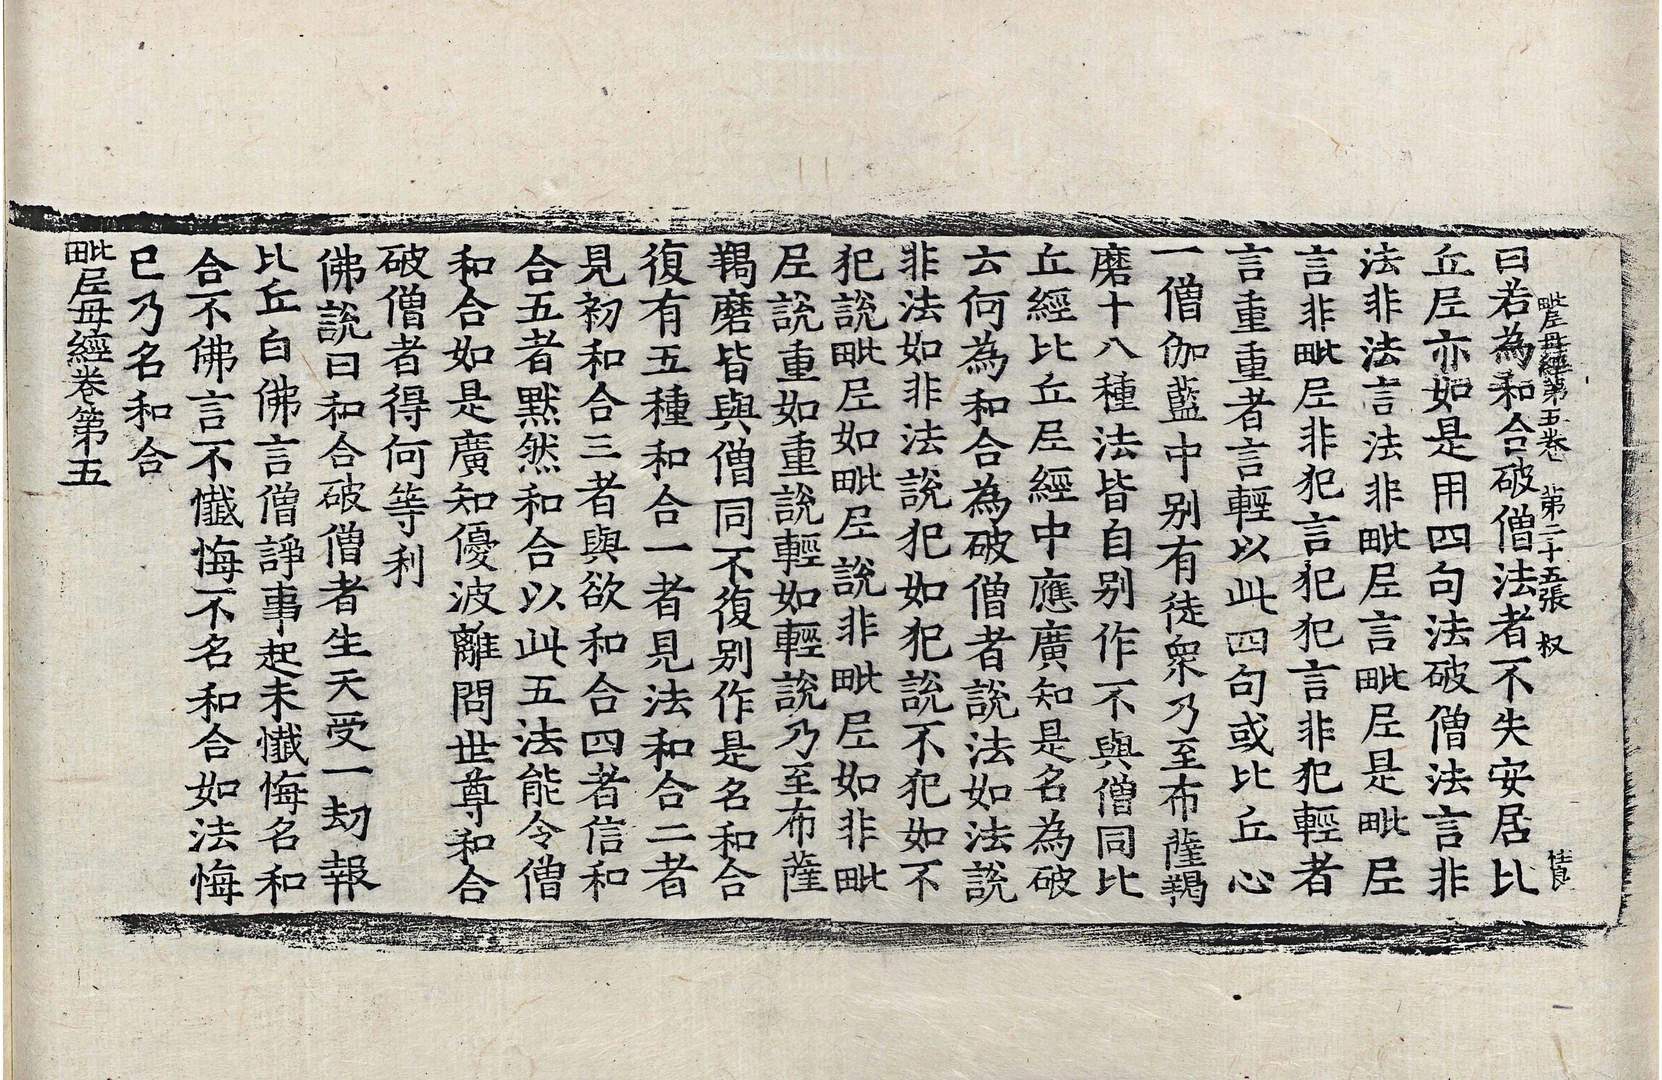 毗𡰱母經第五卷　第二十五張　㭉
曰若為和合破僧法者不失安居比
丘𡰱亦如是用四句法破僧法言非
法非法言法非毗𡰱言毗𡰱是毗𡰱
言非毗𡰱非犯言犯犯言非犯輕者
言重重者言輕以此四句或比丘心
一僧伽藍中别有徒衆乃至布薩羯
磨十八種法皆自别作不與僧同比
丘經比丘𡰱經中應廣知是名為破
云何為和合為破僧者說法如法說
非法如非法說犯如犯說不犯如不
犯說毗𡰱如毗𡰱說非毗𡰱如非毗
𡰱說重如重說輕如輕說乃至布薩
羯磨皆與僧同不復别作是名和合
復有五種和合一者見法和合二者
見初和合三者與欲和合四者信和
合五者默然和合以此五法能令僧
和合如是廣知優波離問世尊和合
破僧者得何等利
佛說曰和合破僧者生天受一劫報
比丘白佛言僧諍事起未懺悔名和
合不佛言不懺悔不名和合如法悔
已乃名和合
毗𡰱母經卷第五